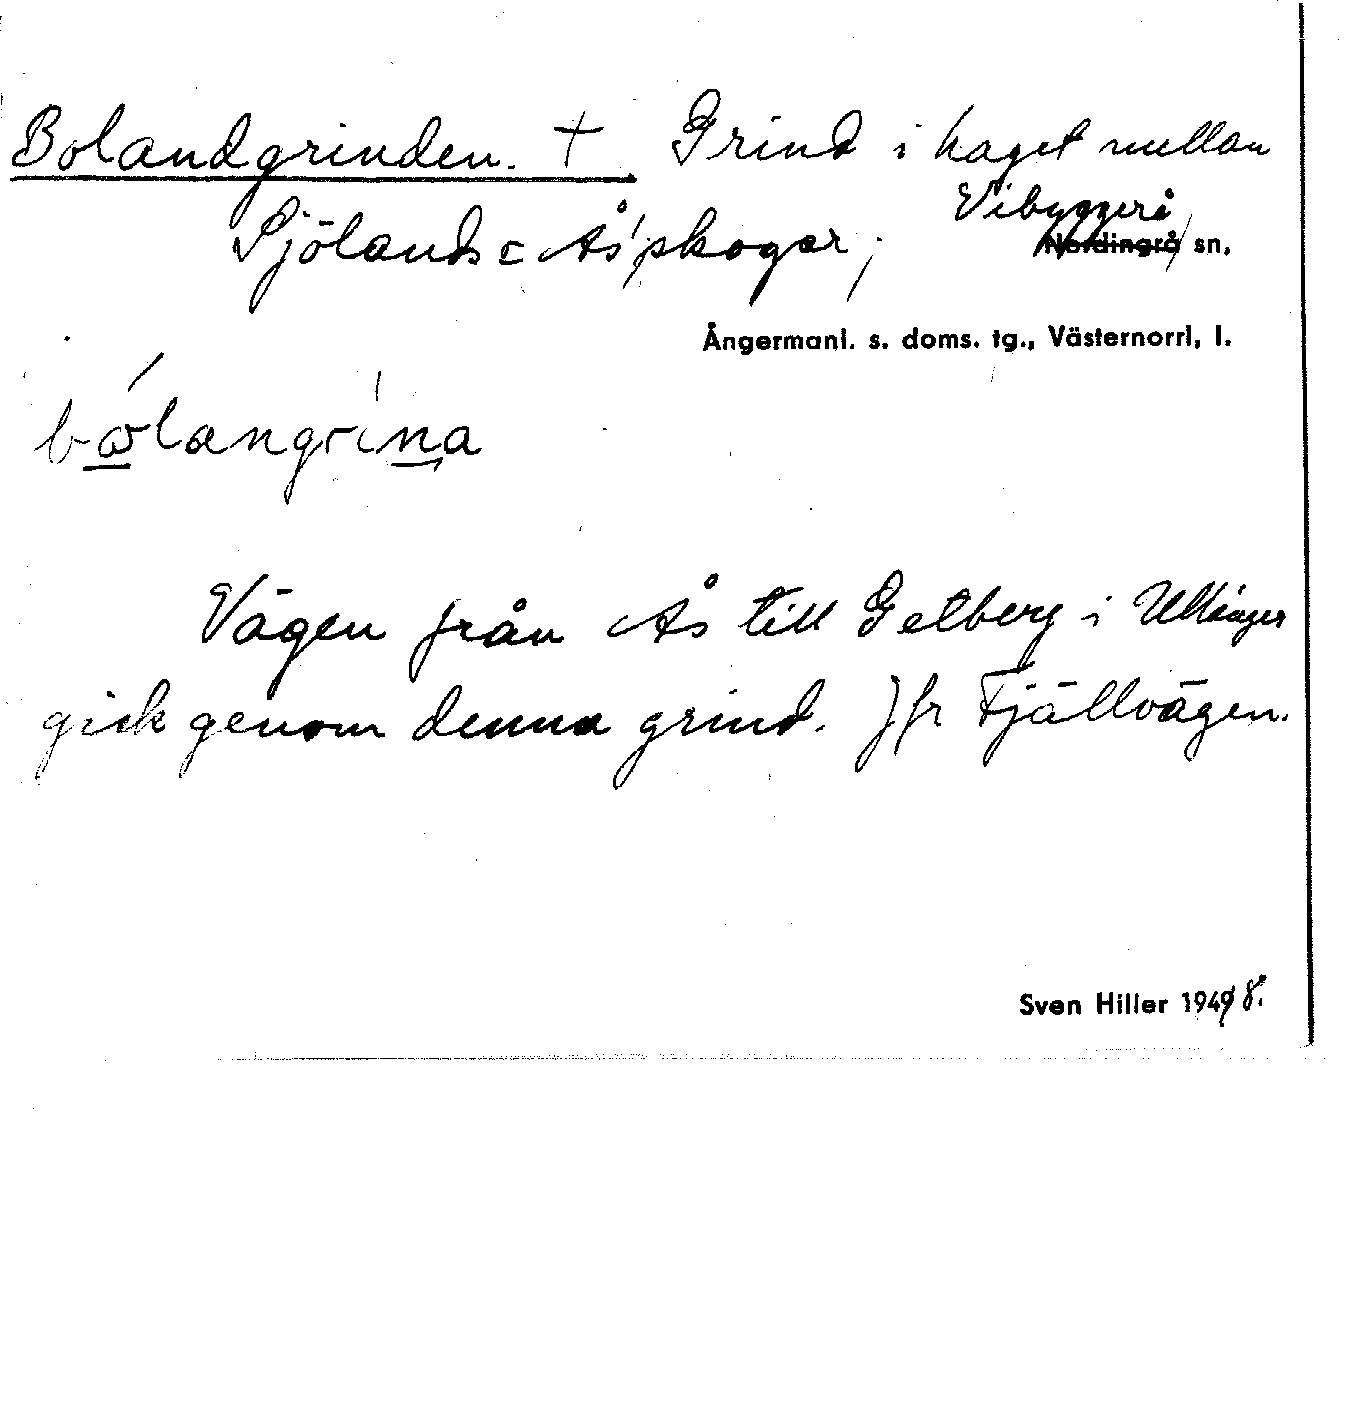 Bolandgrinden. † Grind i haget mellan
Sjölands o Ås skogar;
Vibyggerå
Nordingrå sn.
Ångermanl. s. doms. tg., Västernorrl, l.
bólangrina
Vägen från Ås till Getberg i Ullånger
gick genom denna grind. Jfr Fjällvägen.
Sven Hiller 1949 8.